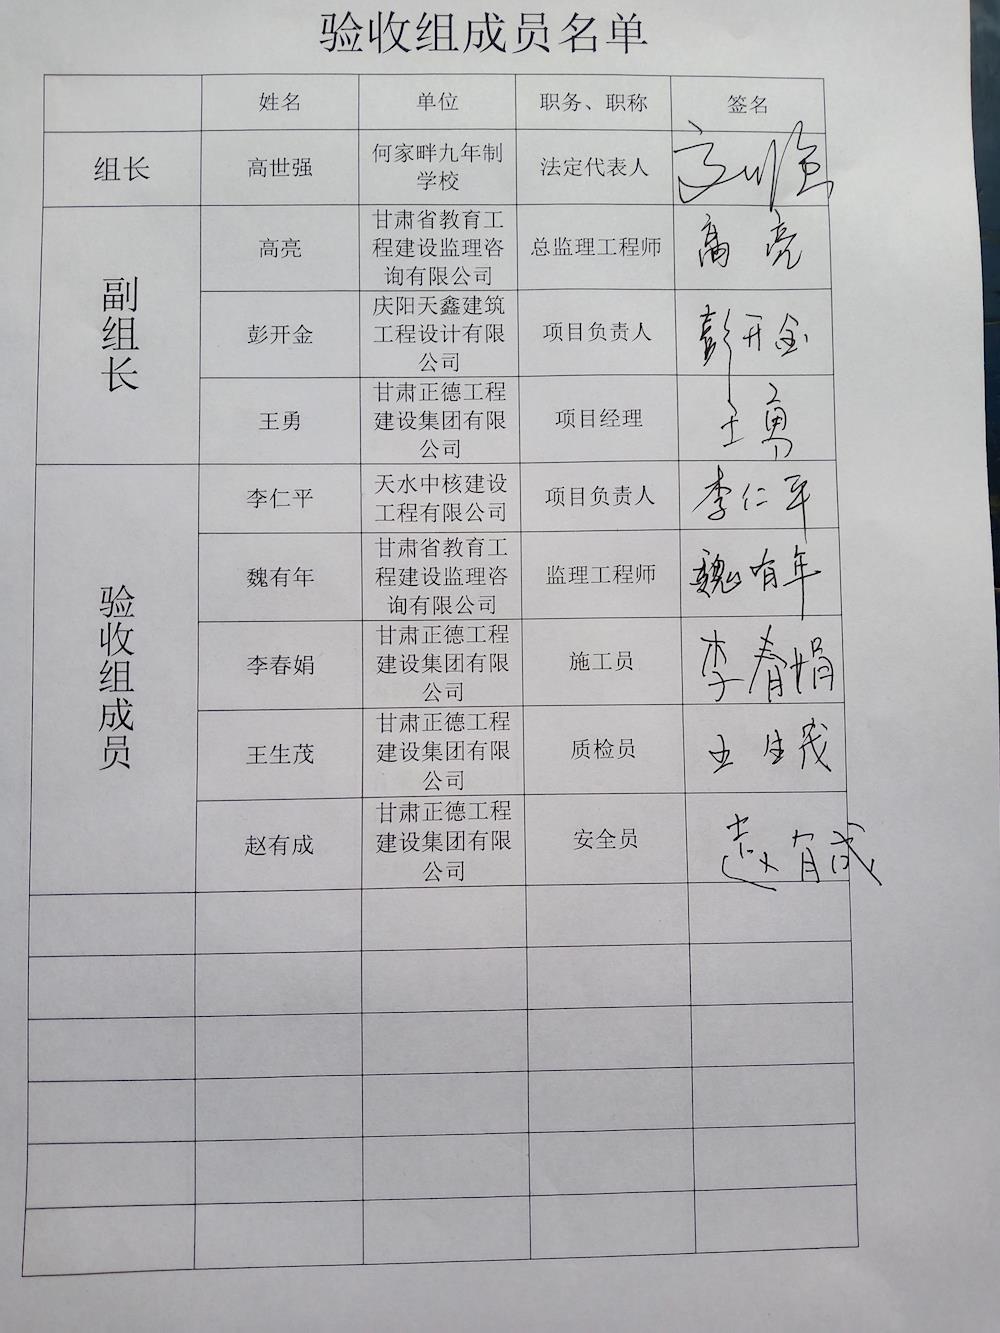 验收组成员名单
姓名 单位 职务、职称 签名
组长 高世强 何家畔九年制 法定代表人
学校
副组长
高亮 甘肃省教育工 总监理工程师 高亮
程建设监理咨
询有限公司
彭开金 庆阳天鑫建筑 项目负责人 彭开金
工程设计有限
公司
王勇 甘肃正德工程 项目经理 王勇
建设集团有限
公司
验收组成员
李仁平 天水中核建设 项目负责人 李仁平
工程有限公司
魏有年 甘肃省教育工 监理工程师 魏有年
程建设监理咨
询有限公司
李春娟 甘肃正德工程 施工员 李春娟
建设集团有限
公司
王生茂 甘肃正德工程 质检员 王生茂
建设集团有限
公司
赵有成 甘肃正德工程 安全员 赵有成
建设集团有限
公司